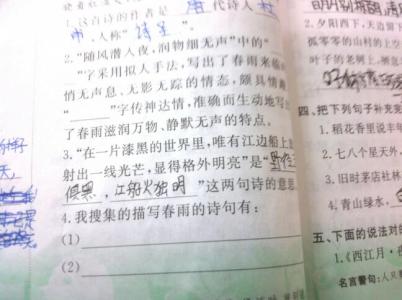 1.这首诗的作者是 唐 代诗人 杜
甫,人称"诗圣"。
2."随风潜入夜,润物细无声"中的"
"字采用拟人手法,写出了春雨来临
悄无声息、无影无踪的情态,颇具情趣
"字传神达情,准确而生动地写出
了春雨滋润万物、静默无声的特点。
3."在一片漆黑的世界里,唯有江边船上
射出一线光芒,显得格外明亮"是"野径云
俱黑,江船火独明"这两句诗的意思
4.我搜集的描写春雨的诗句有:
(1)
(2)
2.夕阳西下,天边留下
孤零零的山村的上空
叶子的老树上,
四、把下列句子补充完
1.稻花香里说丰年
2.七八个星天外,
3.旧时茅店社林
4.青山绿水,白
五、下面的说法对的
1.《西江月·夜
名言警句:人只